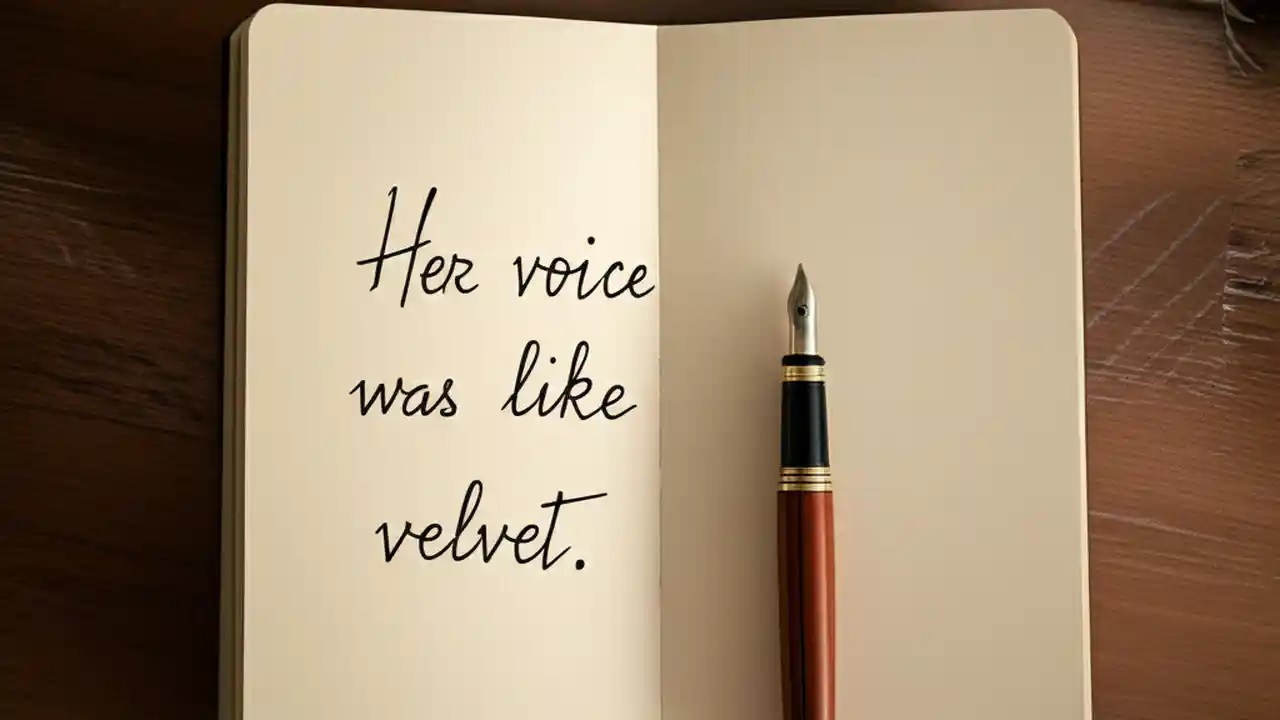 Her voice
was like
velvet.